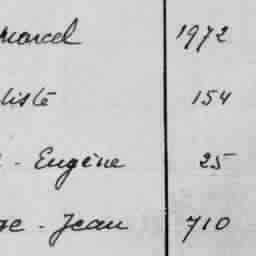 Marcel 1972
liste 154
- Eugène 25
- Jean 710